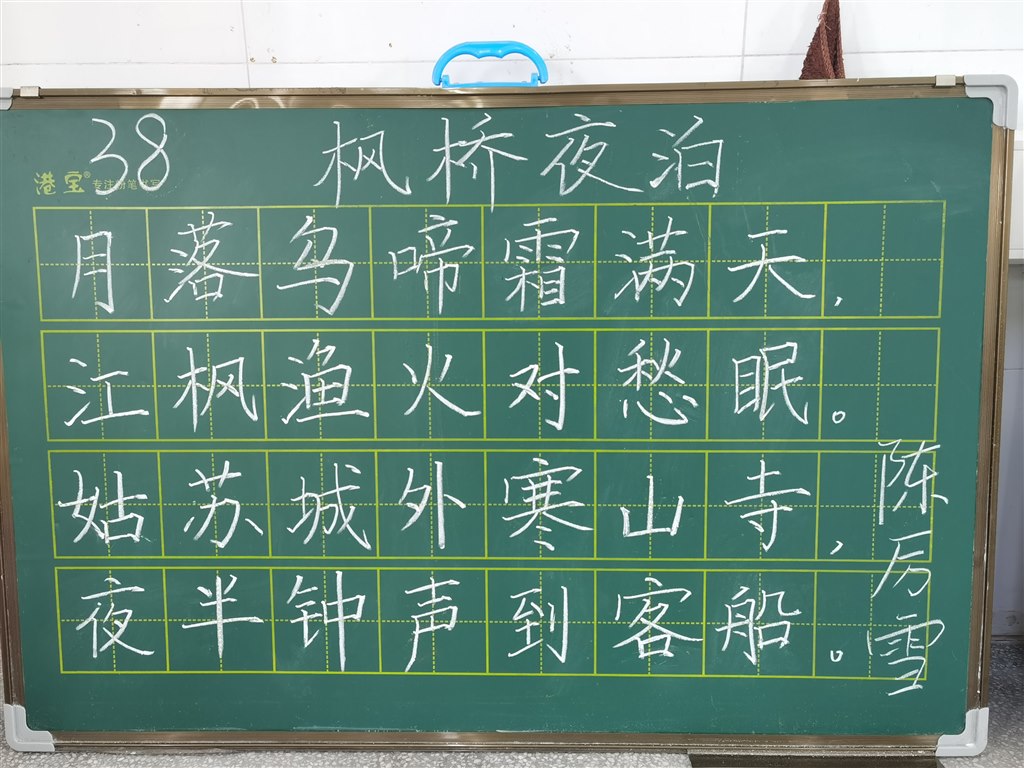 38 枫桥夜泊
港宝® 专注粉笔书写
月落乌啼霜满天，
江枫渔火对愁眠。
姑苏城外寒山寺，
夜半钟声到客船。
陈厉雪